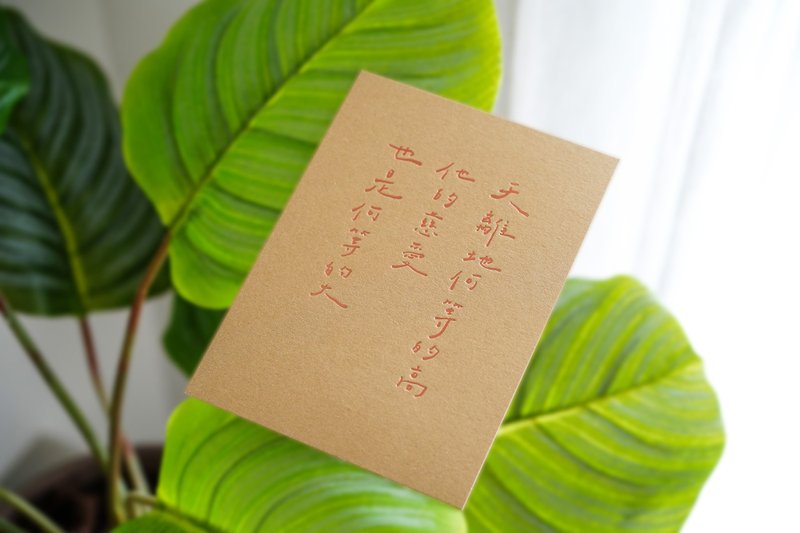 天離地何等的高
他的慈愛
也是何等的大